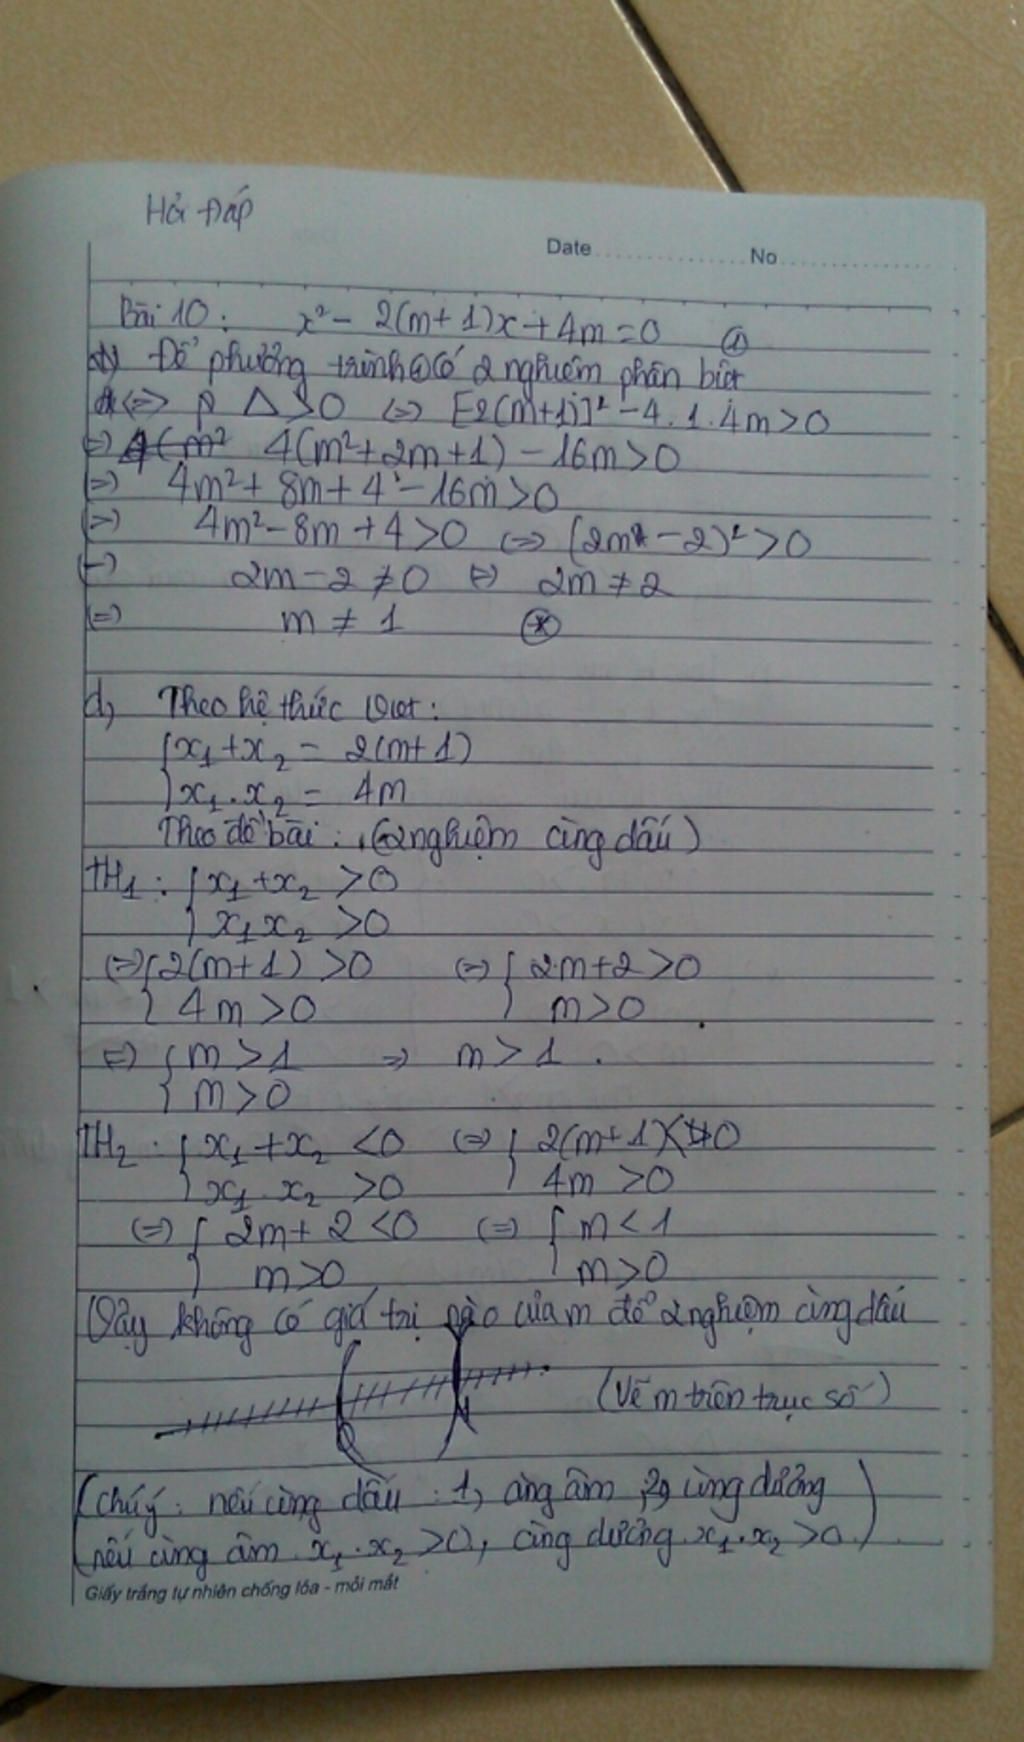 Hỏi Đáp
Date No
Bài 10: x² - 2(m+1)x + 4m = 0 ①
Để phương trình ① có 2 nghiệm phân biệt
<=> Δ > 0 <=> [2(m+1)]² - 4.1.4m > 0
<=> 4(m² + 2m + 1) - 16m > 0
<=> 4m² + 8m + 4 - 16m > 0
<=> 4m² - 8m + 4 > 0 <=> (2m - 2)² > 0
<=> 2m - 2 ≠ 0 <=> 2m ≠ 2
<=> m ≠ 1 (*)
d, Theo hệ thức Viet:
{ x₁ + x₂ = 2(m+1)
{ x₁.x₂ = 4m
Theo đề bài: (2 nghiệm cùng dấu)
TH₁: { x₁ + x₂ > 0
{ x₁x₂ > 0
<=> { 2(m+1) > 0 <=> { 2m + 2 > 0
{ 4m > 0 { m > 0
<=> { m > 1 => m > 1.
{ m > 0
TH₂: { x₁ + x₂ < 0 <=> { 2(m+1) < 0
{ x₁.x₂ > 0 { 4m > 0
<=> { 2m + 2 < 0 <=> { m < 1
{ m > 0 { m > 0
Vậy không có giá trị nào của m để 2 nghiệm cùng dấu
(Vẽ m trên trục số)
(chú ý: nếu cùng dấu: 1, cùng âm, 2, cùng dương
nếu cùng âm x₁.x₂ > 0, cùng dương x₁.x₂ > 0.)
Giấy trắng tự nhiên chống lóa - mỏi mắt